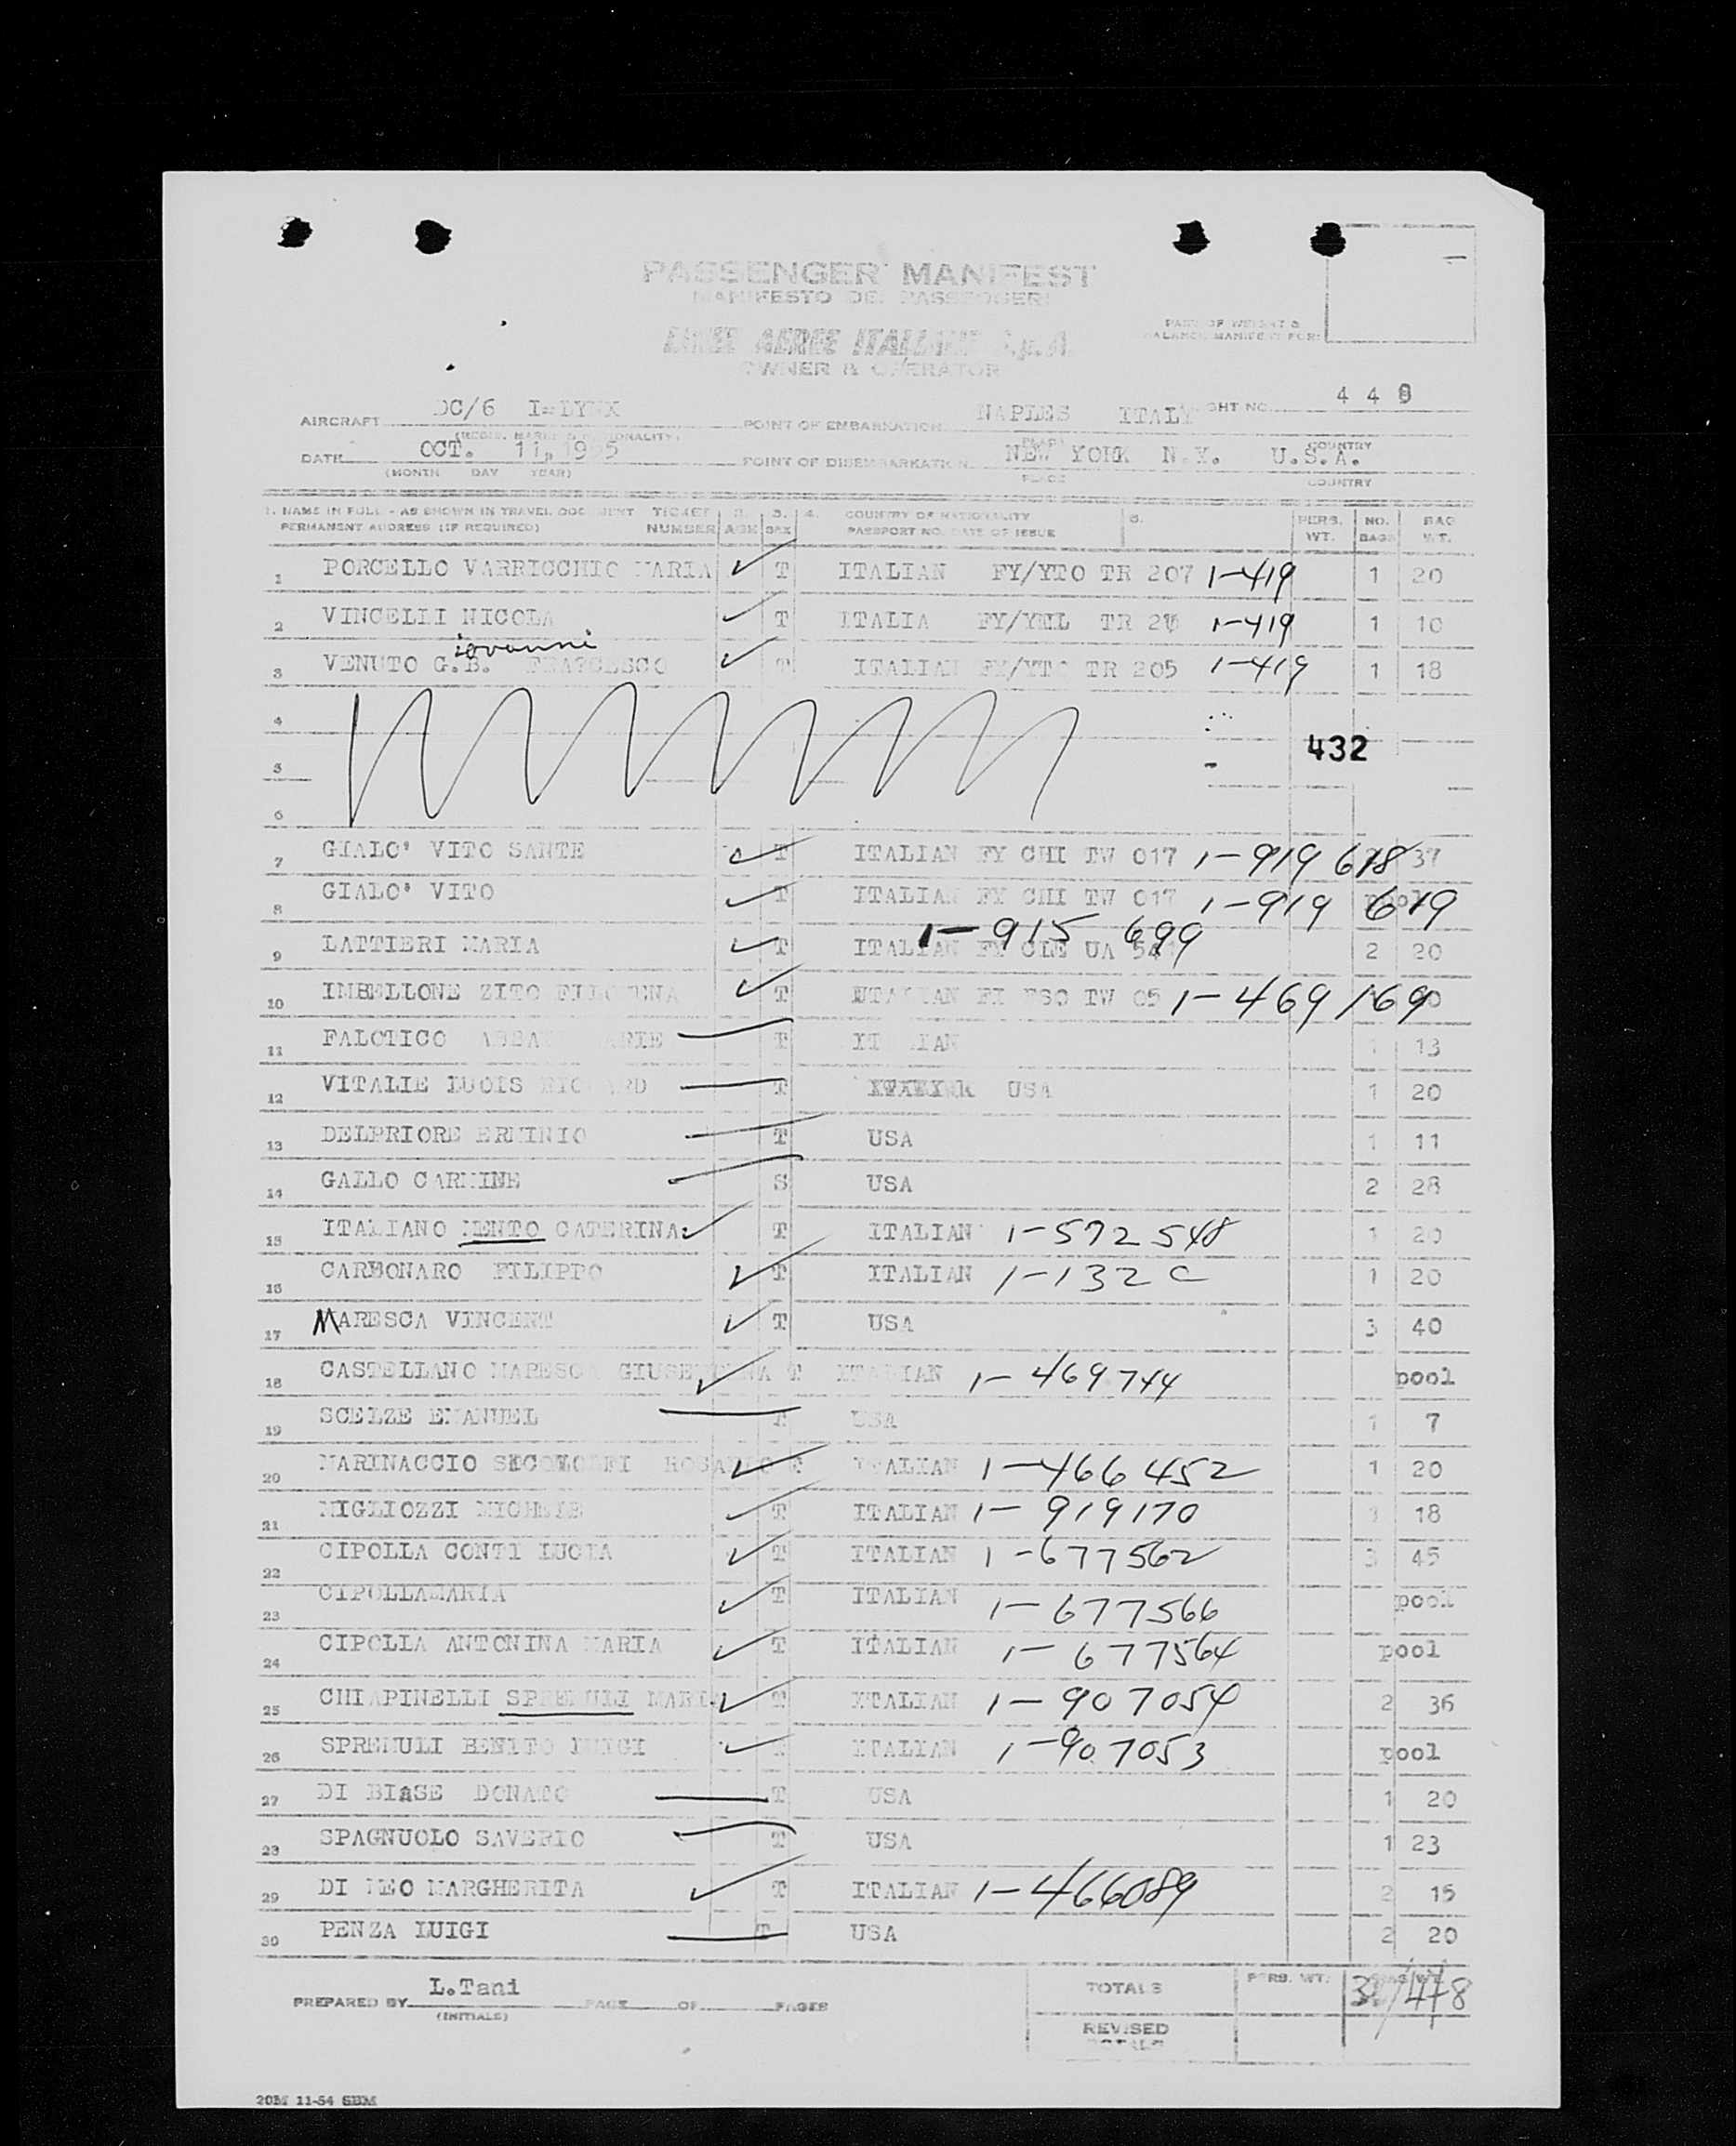 PASSENGER MANIFEST
MANIFESTO DEI PASSEGGERI
LINEE AEREE ITALIANE S.p.A.
OWNER & OPERATOR
PART OF WEIGHT &
BALANCE MANIFEST FOR:
AIRCRAFT DC/6 I-LYNX POINT OF EMBARKATION NAPLES ITALY GHT NO. 4 4 8
(REGIS. MARKS & NATIONALITY) PLACE COUNTRY
DATE OCT. 11, 1955 POINT OF DISEMBARKATION NEW YORK N.Y. U.S.A.
(MONTH DAY YEAR) PLACE COUNTRY
1. NAME IN FULL - AS SHOWN IN TRAVEL DOCUMENT TICKET 2. 3. 4. COUNTRY OF NATIONALITY 6. PERS. NO. BAG
PERMANENT ADDRESS (IF REQUIRED) NUMBER AGE SEX PASSPORT NO. DATE OF ISSUE WT. BAGS WT.
1 PORCELLO VARRICCHIO MARIA T ITALIAN FY/YTO TR 207 1-419 1 20
2 VINCELLI NICOLA T ITALIA FY/YUL TR 1-419 1 10
iovanni
3 VENUTO G.B. FRANCESCO T ITALIAN FY/YTO TR 205 1-419 1 18
4
432
5
6
7 GIALO' VITO SANTE T ITALIAN FY CHI TW 017 1-919 618 37
8 GIALO' VITO T ITALIAN FY CHI TW 017 1-919 619 pool
1-915 699
9 LATTIERI MARIA T ITALIAN FY CLE UA 2 20
10 IMBELLONE ZITO FILOMENA T ITALIAN TW 1-469169
11 FALOTICO T ITALIAN 1 13
12 VITALIE LUOIS RICHARD T USA 1 20
13 DELPRIORE ERMINIO T USA 1 11
14 GALLO CARMINE S USA 2 28
15 ITALIANO MENTO CATERINA T ITALIAN 1-592 548 1 20
16 CARBONARO FILIPPO T ITALIAN 1-132 C 1 20
17 MARESCA VINCENT T USA 3 40
18 CASTELLANO MARESCA GIUSEPPINA T ITALIAN 1-469744 pool
19 SCELZE EMANUEL T USA 1 7
20 MARINACCIO ROSARIO T ITALIAN 1-466452 1 20
21 MIGLIOZZI MICHELE T ITALIAN 1-919170 1 18
22 CIPOLLA CONTI LUCIA T ITALIAN 1-677562 3 45
23 CIPOLLAMARIA T ITALIAN 1-677566 pool
24 CIPOLLA ANTONINA MARIA T ITALIAN 1-677564 pool
25 CHIAPINELLI SPREMULI MARIA T ITALIAN 1-907054 2 36
26 SPREMULI BENITO LUIGI T ITALIAN 1-907053 pool
27 DI BIASE DONATO T USA 1 20
28 SPAGNUOLO SAVERIO T USA 1 23
29 DI MEO MARGHERITA T ITALIAN 1-466089 2 15
30 PENZA LUIGI T USA 2 20
PREPARED BY L.Tani PAGE OF PAGES TOTALS PERS. WT. 478
(INITIALS) REVISED
TOTALS
20M 11-54 SBM